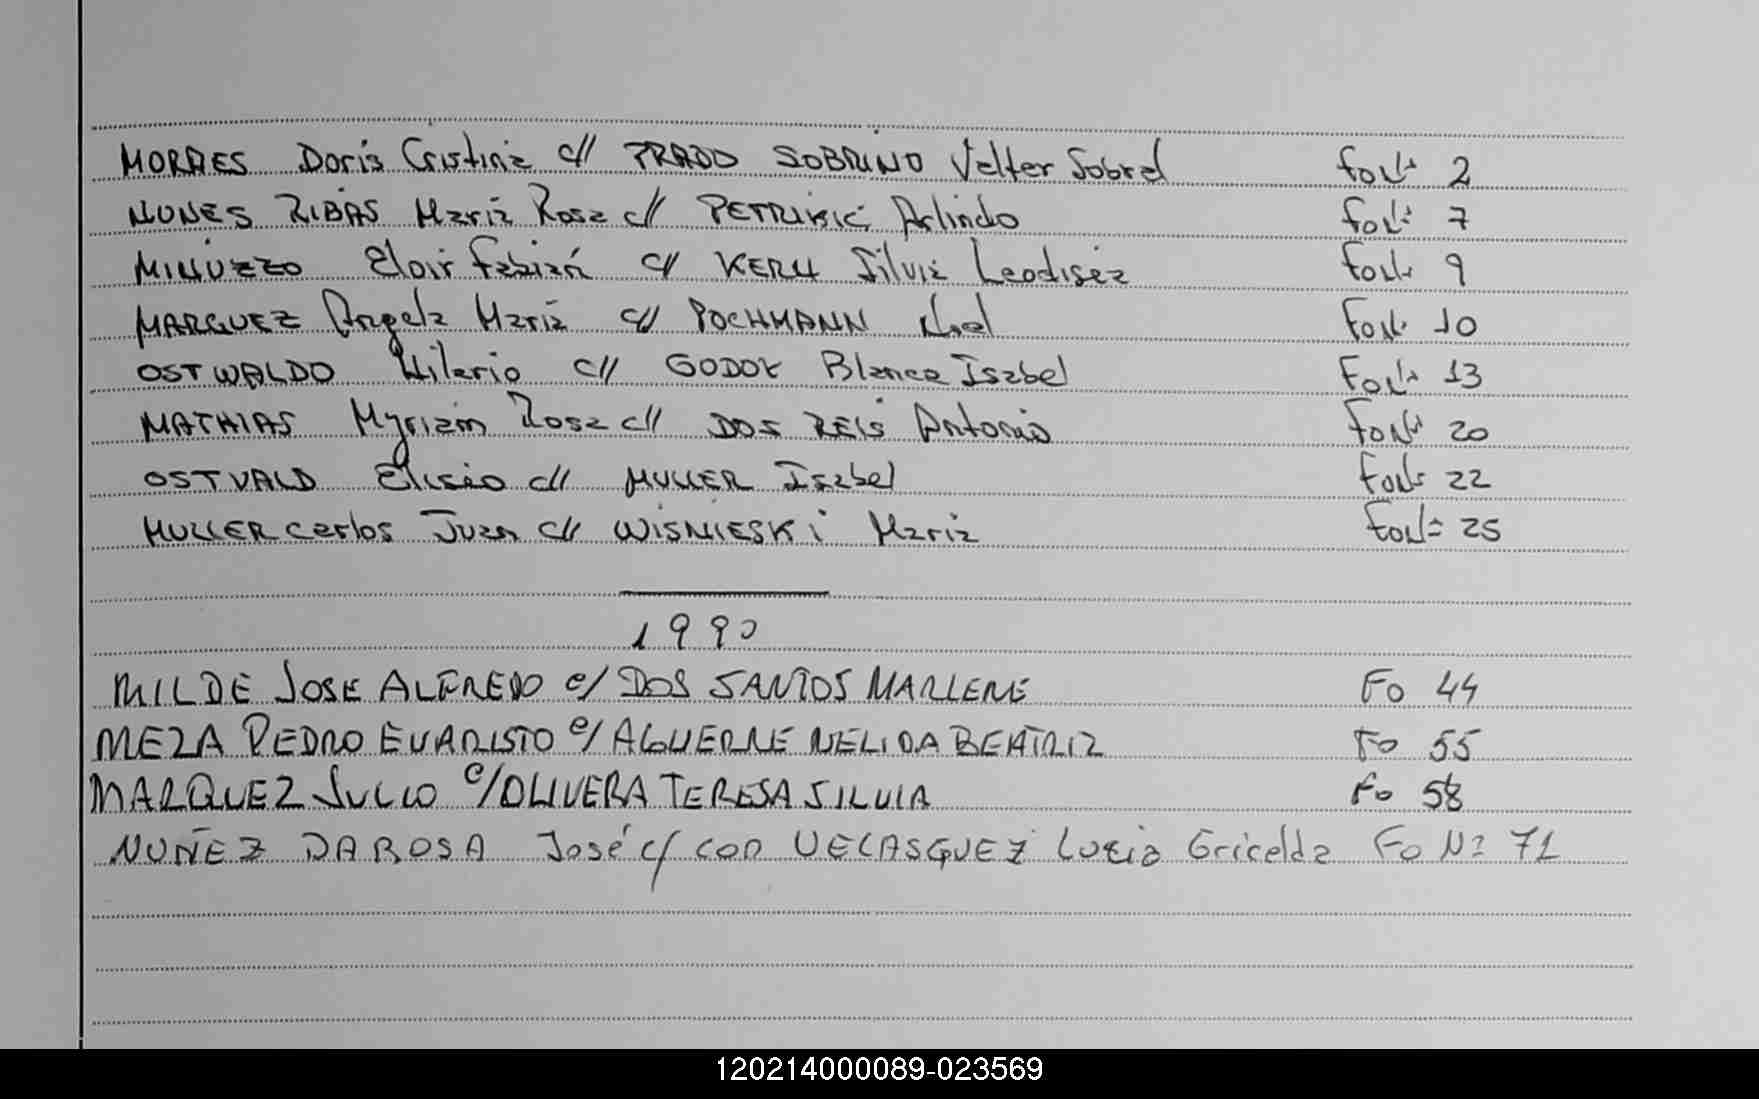 MORAES Doris Cristina c// PRADO SOBRINO Valter Sobrel Fo Nº 2
NUNES RIBAS Maria Rosa c// PETRIKIC Arlindo Fo Nº 7
MINUZZO Eloir Fabián c// KERN Silvia Leodisea Fo Nº 9
MARQUEZ Angela Maria c// POCHMANN Noel Fo Nº 10
OSTWALDO Hilario c// GODOY Blanca Isabel Fo Nº 13
MATHIAS Myriam Rosa c// DOS REIS Antonio Fo Nº 20
OSTVALD Eliseo c// MULLER Isabel Fo Nº 22
MULLER Carlos Juan c// WISNIESKI Maria Fo Nº 25
1990
MILDE JOSE ALFREDO c/ DOS SANTOS MARLENE Fo 44
MEZA PEDRO EVARISTO c/ AGUERRE NELIDA BEATRIZ Fo 55
MARQUEZ JULIO c/ OLIVERA TERESA SILVIA Fo 58
NUÑEZ DA ROSA José c/ con VELASQUEZ Lucia Gricelda Fo Nº 71
120214000089-023569